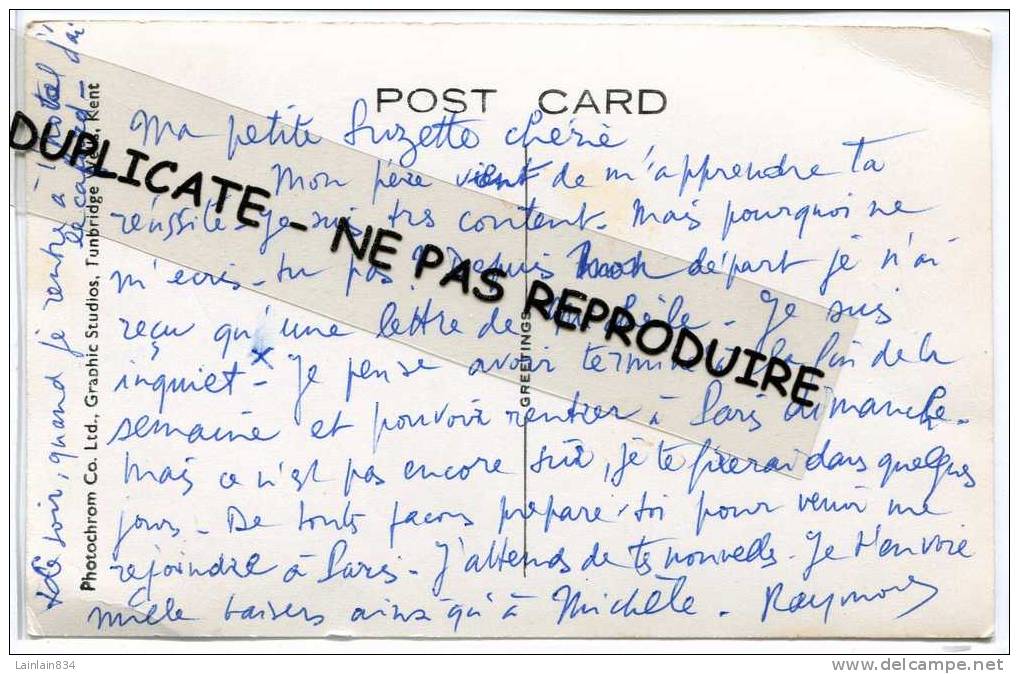 POST CARD
Ma petite Suzette chérie,
Mon père vient de m'apprendre ta
réussite. Je suis très content. Mais pourquoi ne
m'écris-tu pas? Depuis mon départ je n'ai
reçu qu'une lettre de. Je suis
inquiet - Je pense avoir terminé la fin de la
semaine et pouvoir rentrer à Paris dimanche.
Mais ce n'est pas encore sûr, je te fixerai dans quelques
jours - De toute façons prépare-toi pour venir me
rejoindre à Paris - J'attends de tes nouvelles. Je t'envoie
mille baisers ainsi qu'à Michèle - Raymond
x Le soir, quand je rentre à l'hotel j'ai
le cafard -
Photochrom Co. Ltd., Graphic Studios, Tunbridge Wells, Kent
GREETINGS
DUPLICATE - NE PAS REPRODUIRE
Lainlain834
www.delcampe.net